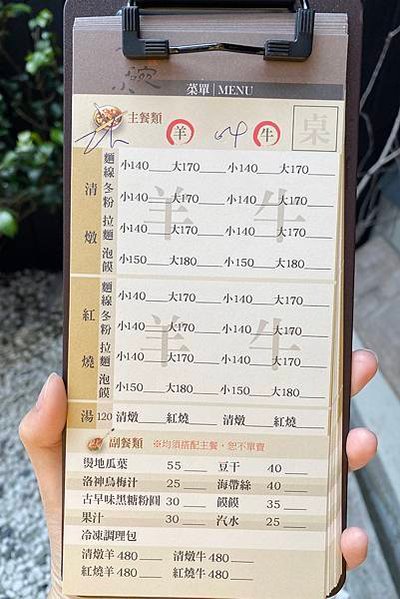 菜單 | MENU
主餐類 羊 牛 桌
清燉
麵線 小140 大170 小140 大170
冬粉 小140 大170 小140 大170
拉麵 小140 大170 小140 大170
泡饃 小150 大180 小150 大180
羊 牛
紅燒
麵線 小140 大170 小140 大170
冬粉 小140 大170 小140 大170
拉麵 小140 大170 小140 大170
泡饃 小150 大180 小150 大180
羊 牛
湯 120 清燉 紅燒 清燉 紅燒
副餐類 ※均須搭配主餐，恕不單賣
燙地瓜葉 55 豆干 40
洛神烏梅汁 25 海帶絲 40
古早味黑糖粉圓 30 饃饃 35
果汁 30 汽水 25
冷凍調理包
清燉羊 480 清燉牛 480
紅燒羊 480 紅燒牛 480